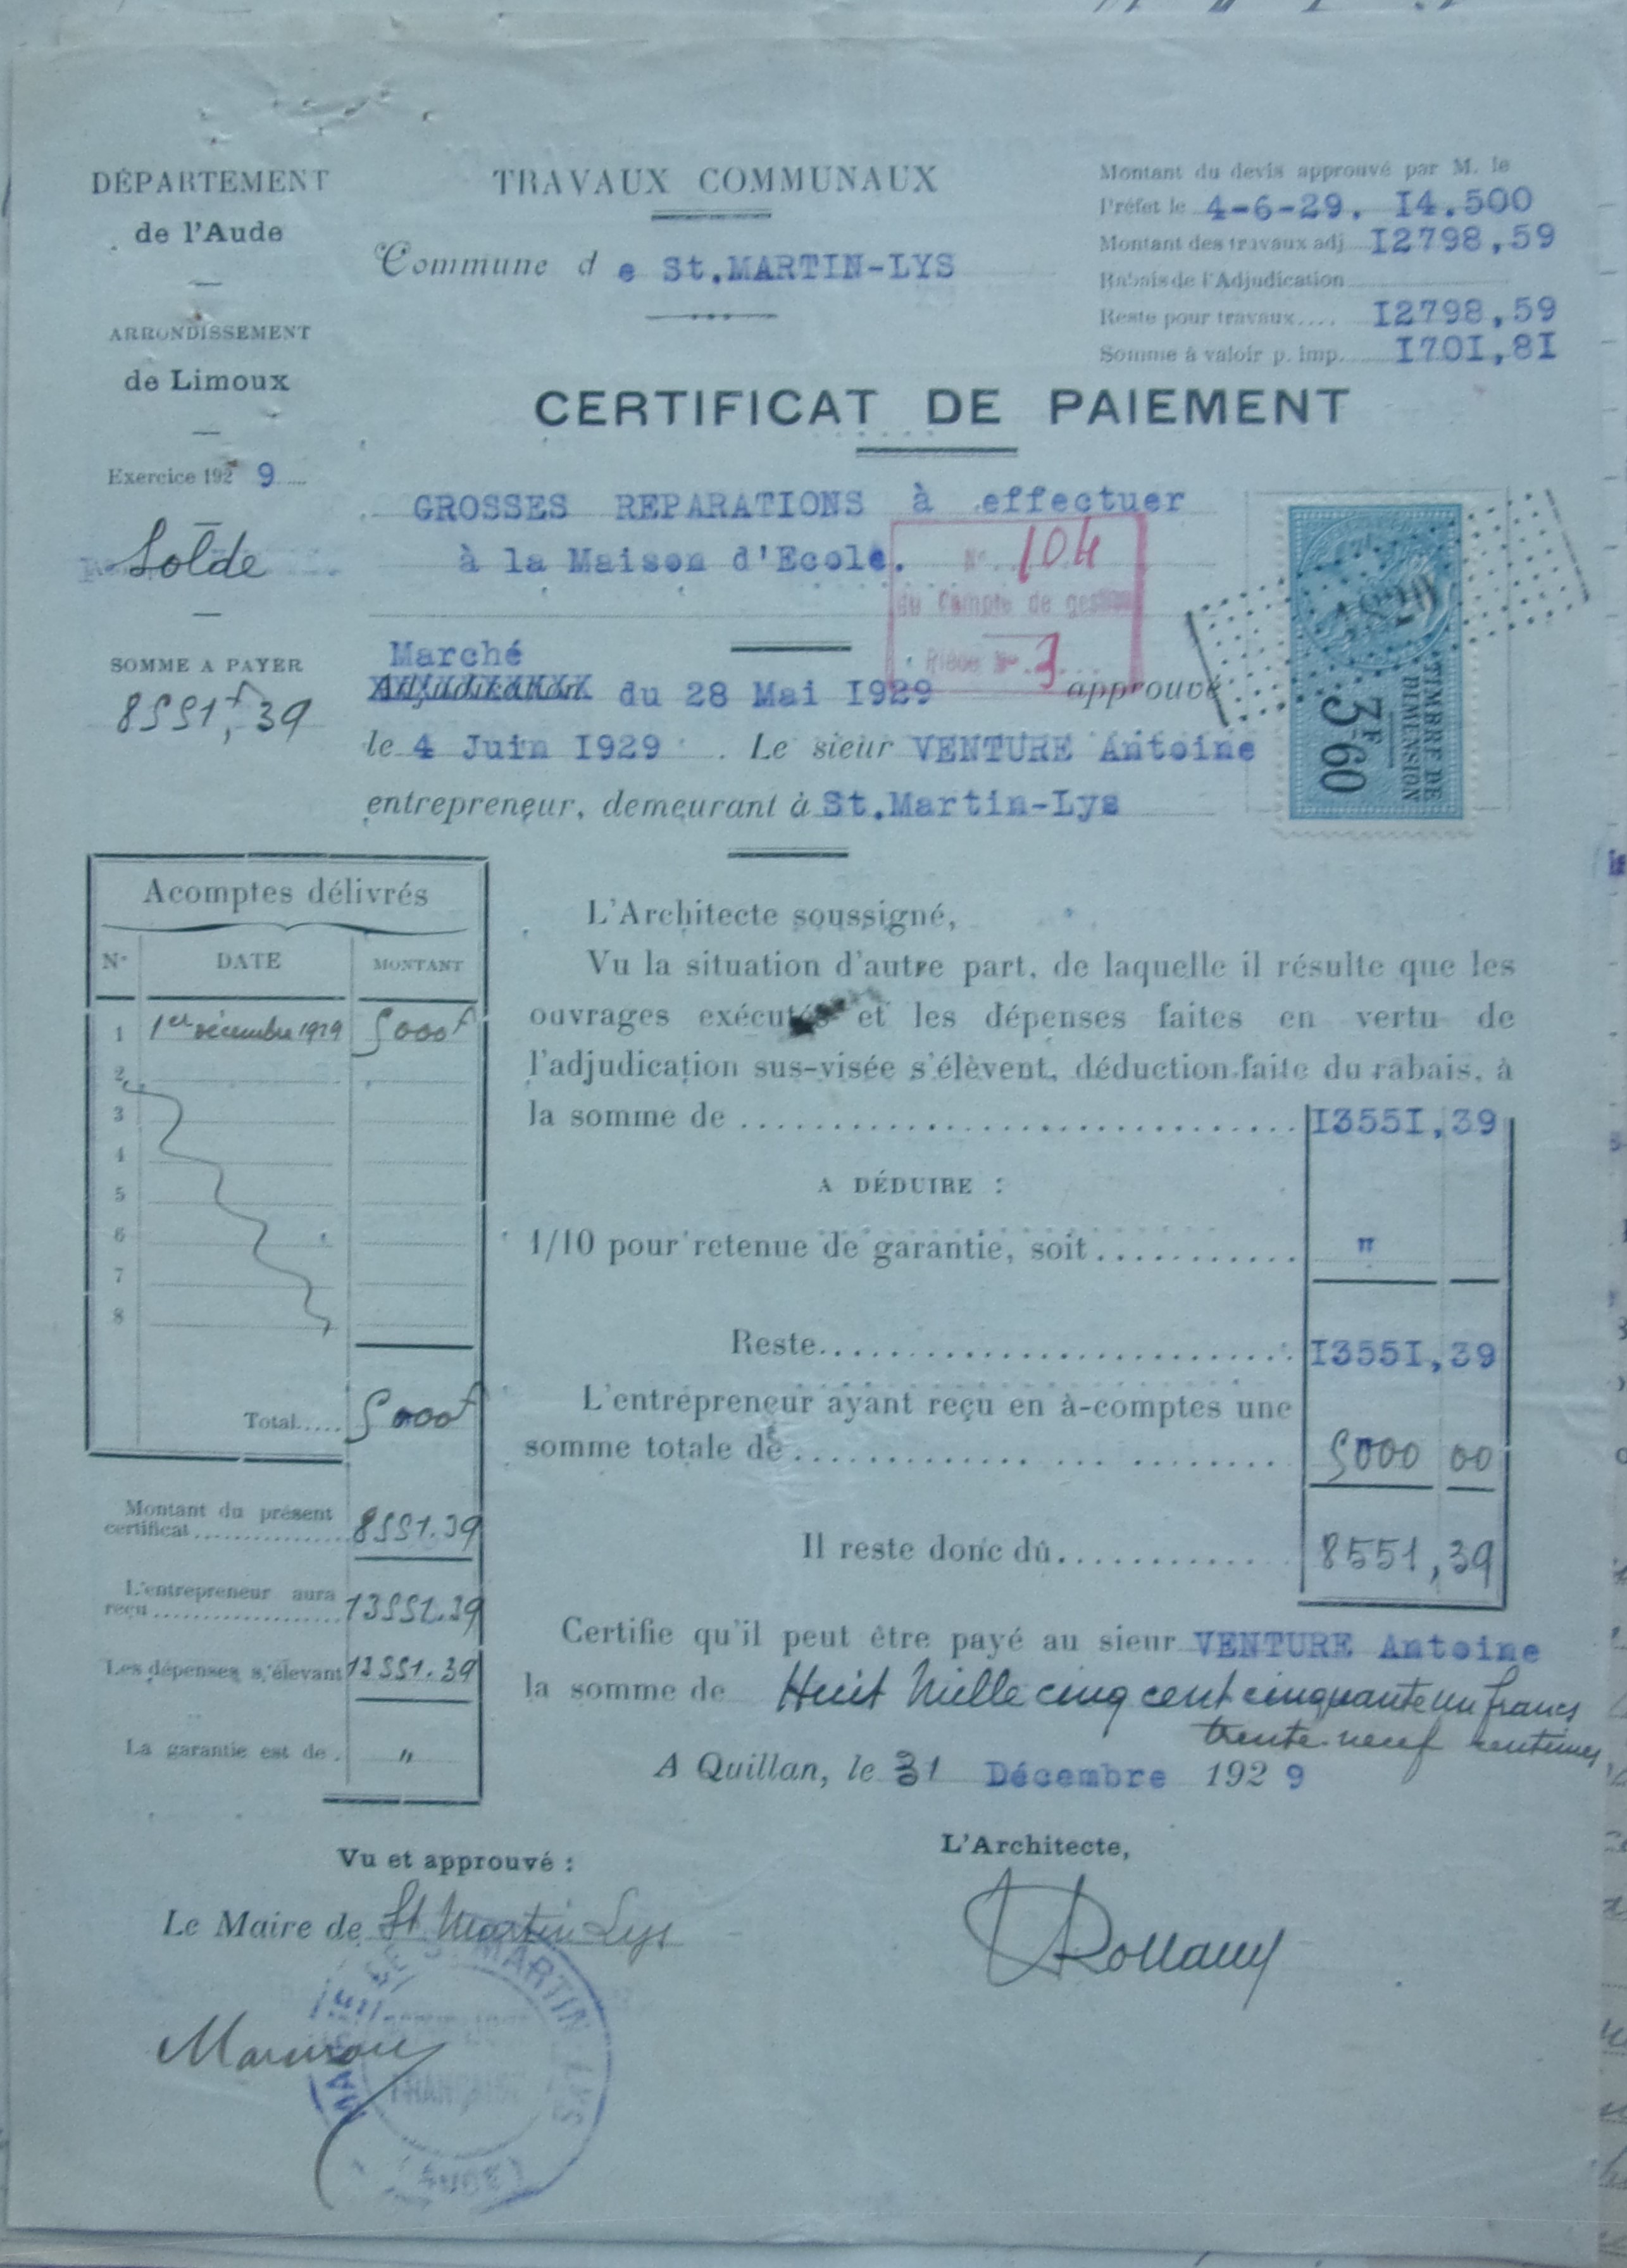 DÉPARTEMENT
de l'Aude
ARRONDISSEMENT
de Limoux
Exercice 192 9
Solde
SOMME A PAYER
8551f,39
TRAVAUX COMMUNAUX
Commune d e St.MARTIN-LYS
Montant du devis approuvé par M. le
Préfet le 4-6-29. I4.500
Montant des travaux adj I2798,59
Rabais de l'Adjudication
Reste pour travaux.... I2798,59
Somme à valoir p. imp. I70I,8I
CERTIFICAT DE PAIEMENT
GROSSES REPARATIONS à effectuer
à la Maison d'Ecole.
N° 104
du Compte de gestion
Pièce N° 3
TIMBRE DE
DIMENSION
3F60
Marché
Adjudication du 28 Mai I929 approuvé
le 4 Juin I929 . Le sieur VENTURE Antoine
entrepreneur, demeurant à St.Martin-Lys
Acomptes délivrés
N° DATE MONTANT
1 1er décembre 1929 5000f
2
3
4
5
6
7
8
Total..... 5000f
Montant du présent
certificat................ 8551.39
L'entrepreneur aura
reçu.................... 13551.39
Les dépenses s'élevant 13551.39
La garantie est de . "
L'Architecte soussigné,
Vu la situation d'autre part, de laquelle il résulte que les
ouvrages exécutés et les dépenses faites en vertu de
l'adjudication sus-visée s'élèvent, déduction faite du rabais, à
la somme de ................................ I355I,39
A DÉDUIRE :
1/10 pour retenue de garantie, soit ............ "
Reste............................ I355I,39
L'entrepreneur ayant reçu en à-comptes une
somme totale de ............................ 5000 00
Il reste donc dû............. 8551,39
Certifie qu'il peut être payé au sieur VENTURE Antoine
la somme de Huit Mille cinq cent cinquante un francs
trente-neuf centimes
A Quillan, le 31 Décembre 192 9
Vu et approuvé :
L'Architecte,
Le Maire de St Martin Lys
MARTIN LYS
FRANÇAISE
(AUDE)